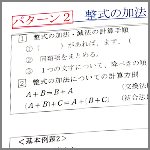 パターン2 整式の加法
1 整式の加法・減法の計算手順
① ( )があれば，まず，(
② 同類項をまとめる。
③ 1つの文字について，降べきの順
2 整式の加法についての計算法則
A+B=B+A (交換法
(A+B)+C=A+(B+C) (結合法
<基本例題2>